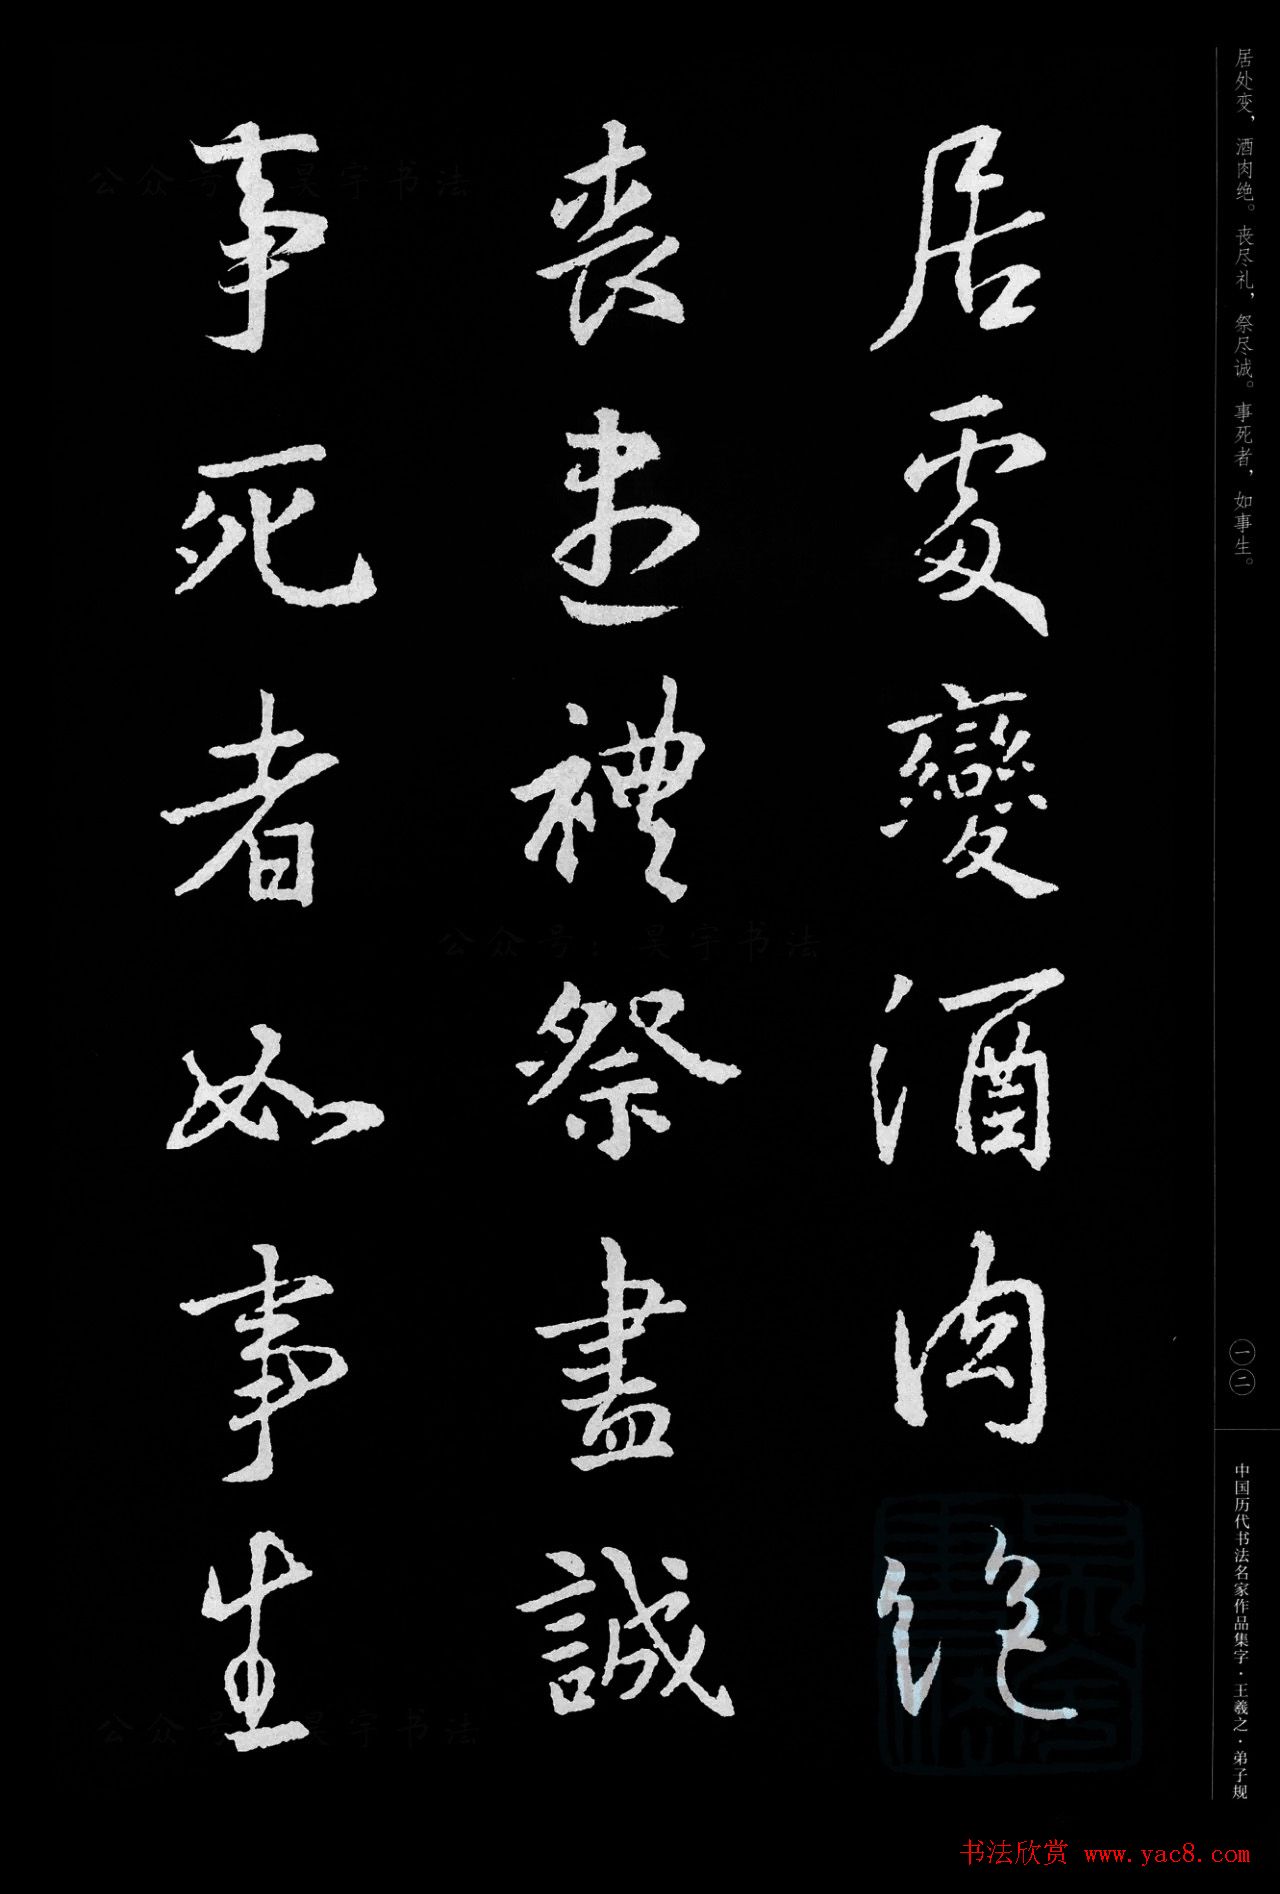 居處變酒肉絕
喪盡禮祭盡誠
事死者如事生
居处变，酒肉绝。丧尽礼，祭尽诚。事死者，如事生。
一二
中国历代书法名家作品集字·王羲之·弟子规
公众号：昊宇书法
公众号：昊宇书法
公众号：昊宇书法
书法欣赏 www.yac8.com